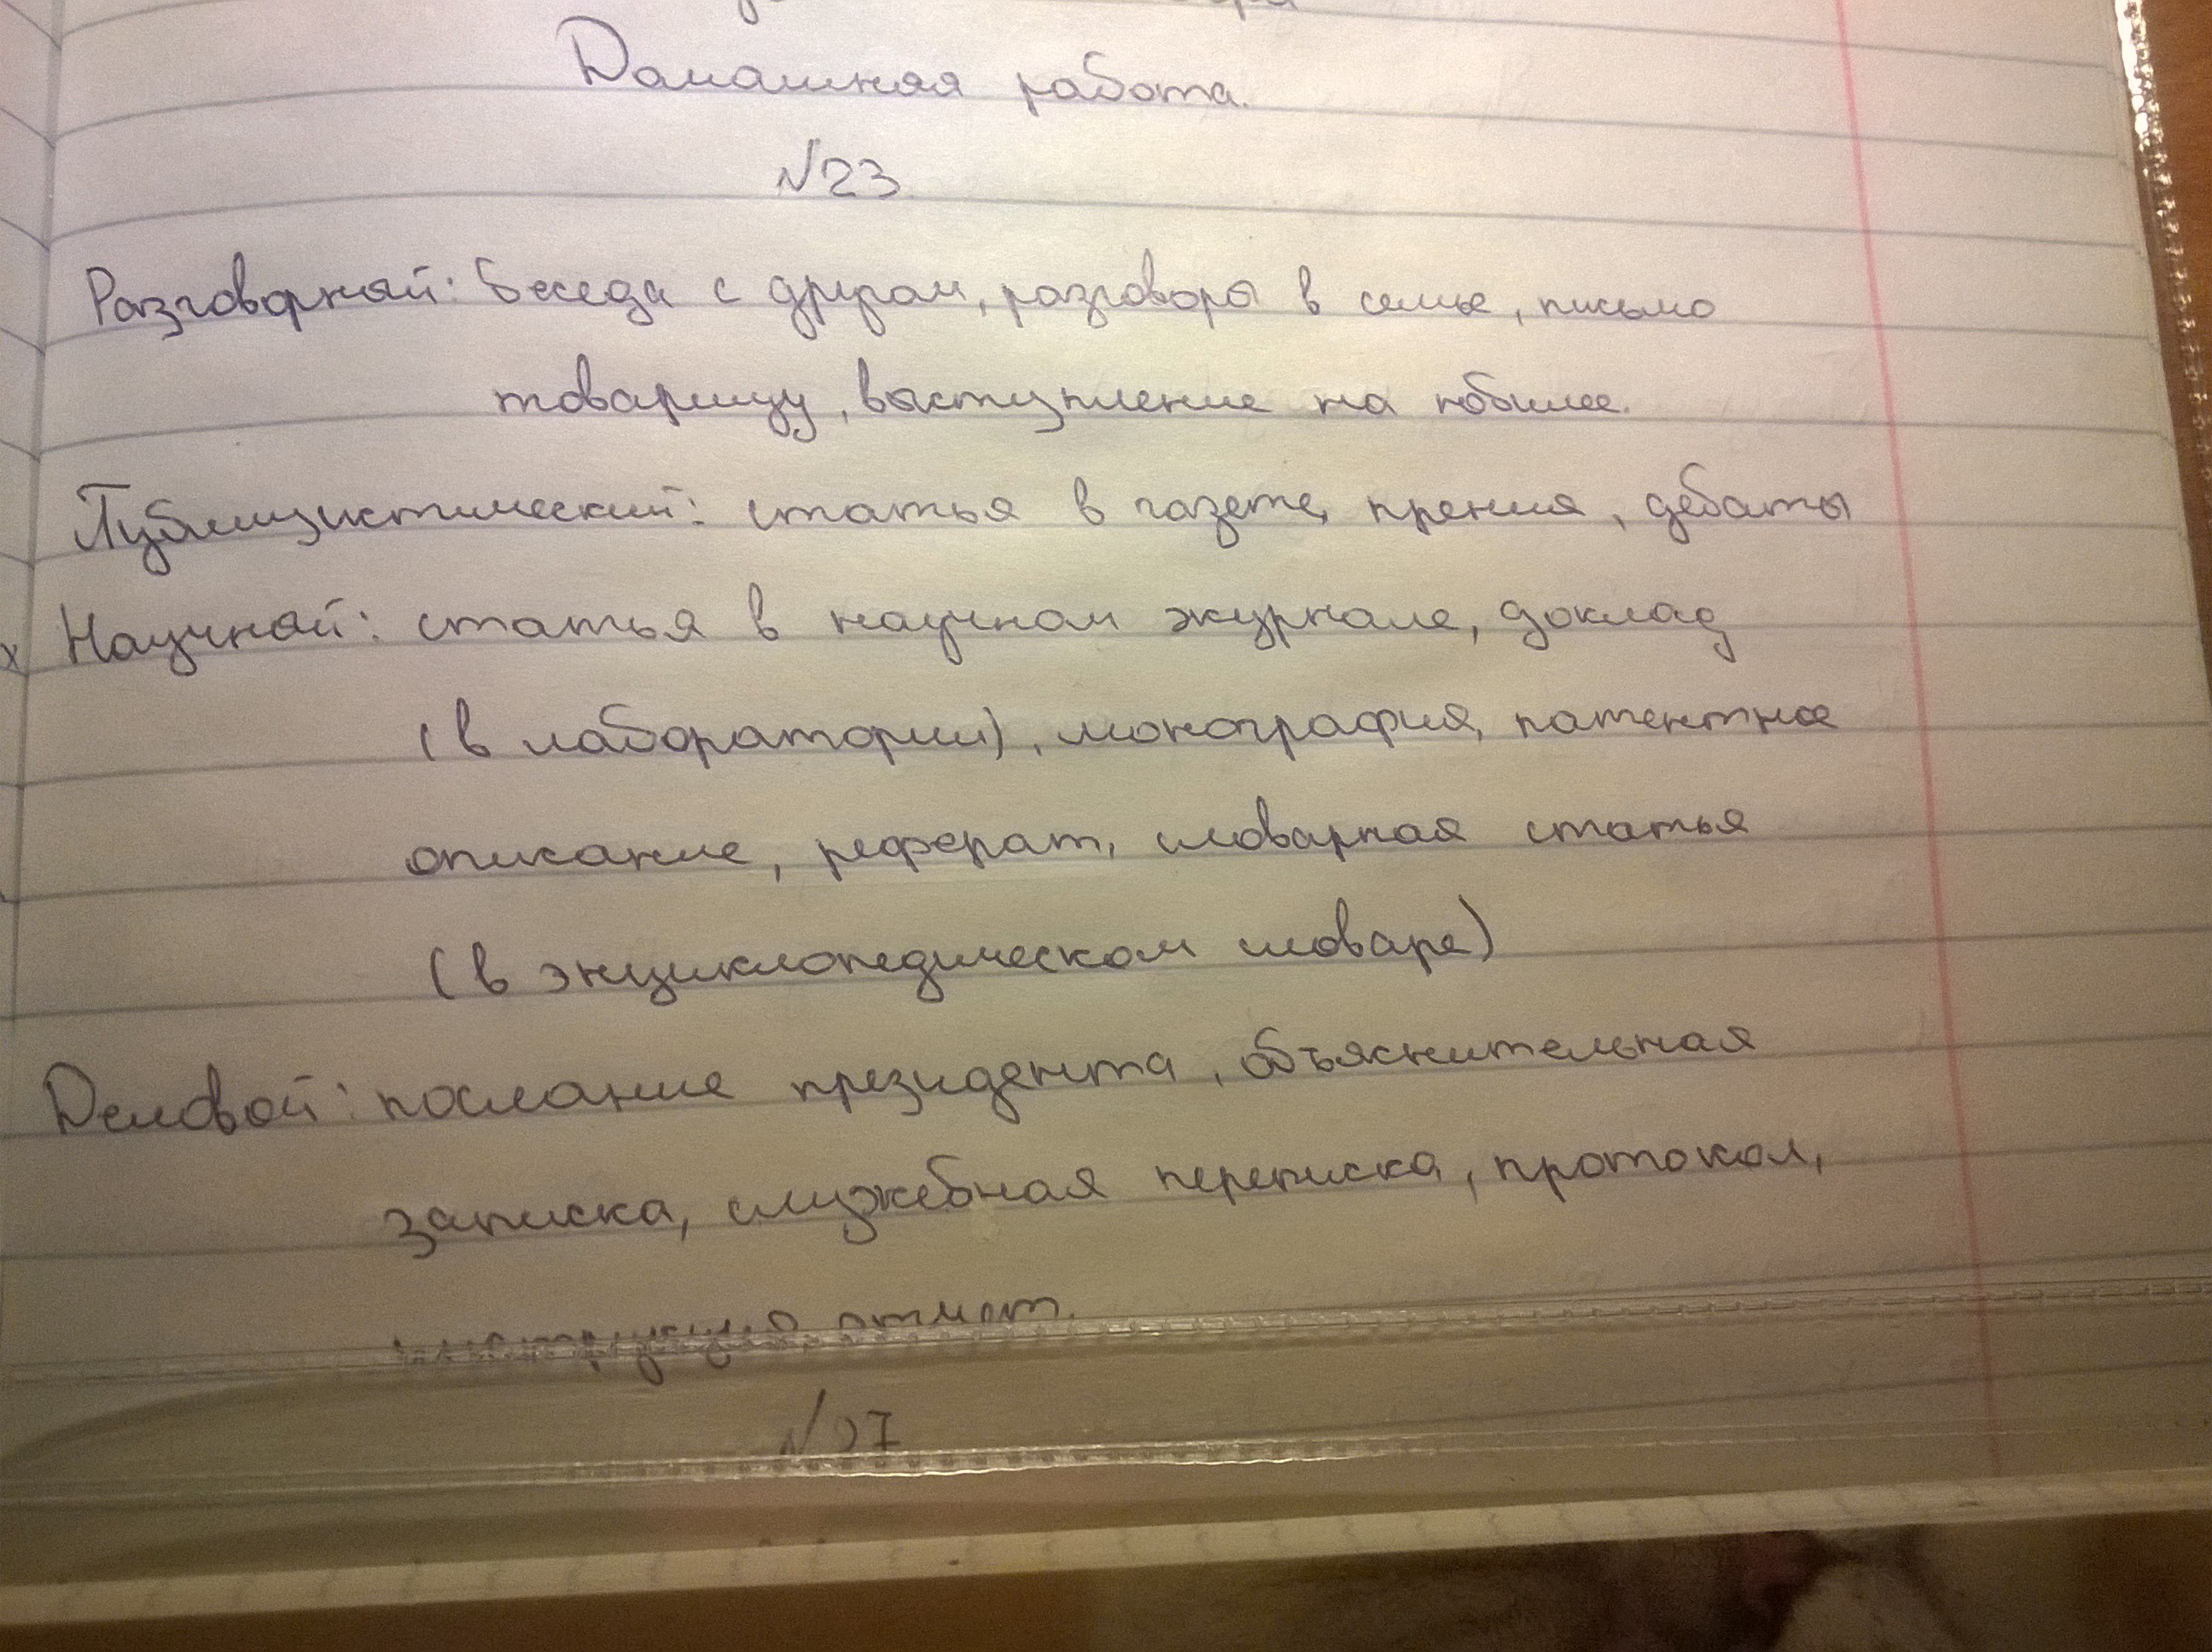 Домашняя работа.
№23
Разговорный: беседа с другом, разговоры в семье, письмо
товарищу, выступление на юбилее.
Публицистический: статья в газете, прения, дебаты
Научный: статья в научном журнале, доклад
(в лаборатории), монография, патентное
описание, реферат, словарная статья
(в энциклопедическом словаре)
Деловой: послание президента, объяснительная
записка, служебная переписка, протокол,
инструкция, отчёт.
№27